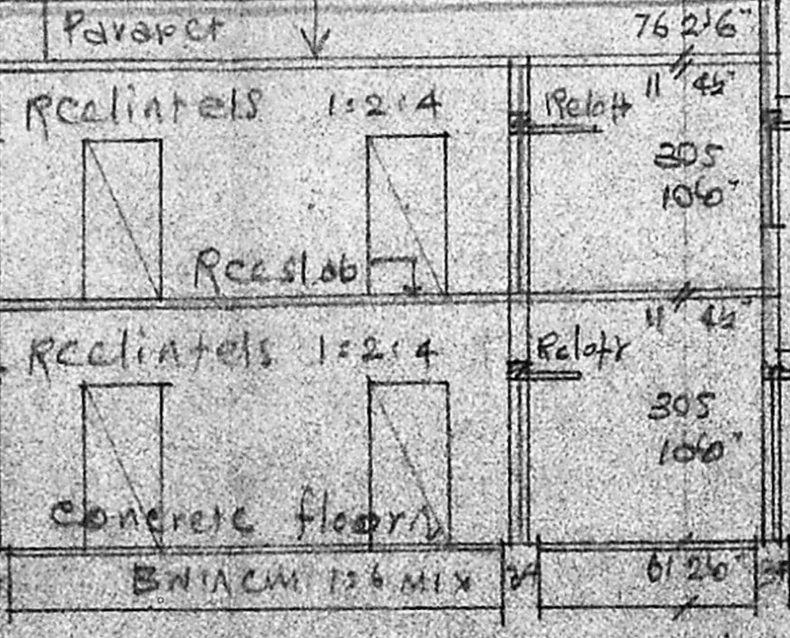 Parapet 76 2'6"
Rcclintels 1:2:4 Rcloft 11 4½"
305
10'0"
Rccslab
11 4½"
Rcclintels 1:2:4 Rcloft
305
10'0"
concrete floor
BWINCM 1:6 MIX 61 2'0"